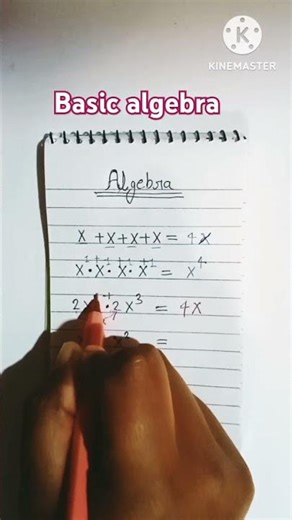 KINEMASTER
Basic algebra
Algebra
x + x + x + x = 4x
x¹ • x¹ • x¹ • x¹ = x⁴
2x • 2x³ = 4x
x³ =